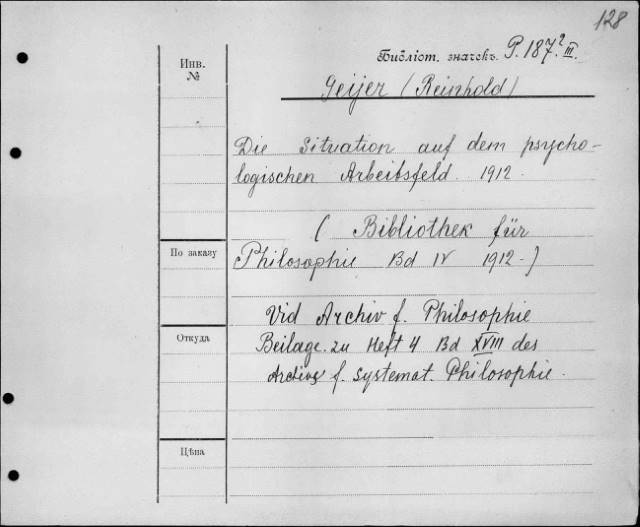 128
Библіот. значекъ P. 187² III.
Инв.
№
Geijer (Reinhold)
Die Situation auf dem psycho-
logischen Arbeitsfeld. 1912.
(Bibliothek für
По заказу
Philosophie Bd IV 1912.)
Vid Archiv f. Philosophie
Откуда
Beilage zu Heft 4 Bd XVIII des
Archivs f. systemat. Philosophie.
Цѣна